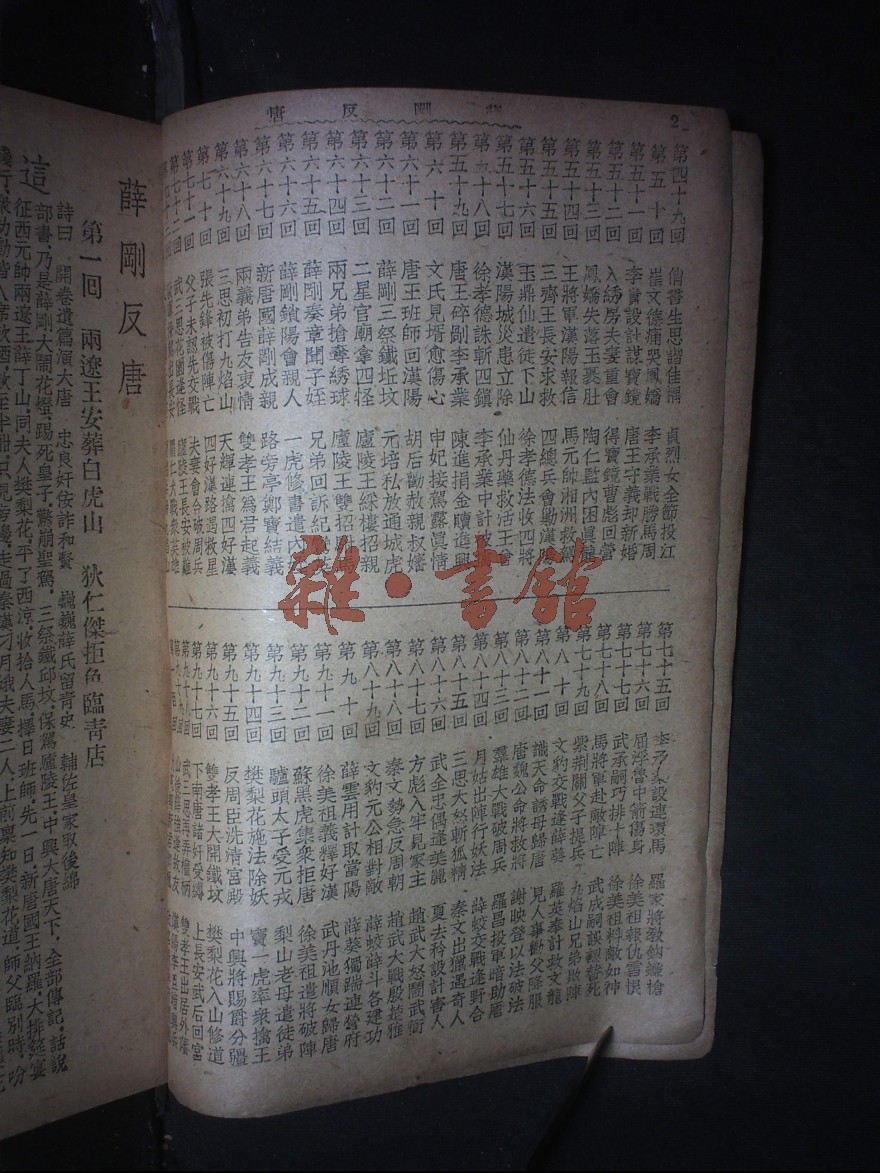 薛剛反唐
2
第四十九回 俏書生思諧佳偶 貞烈女全節投江
第五十回 崔文德痛哭鳳嬌 李承業戰勝馬周
第五十一回 李賣設計謀寶鏡 唐王守義却新婚
第五十二回 入綉房夫妻重會 得寶鏡曹彪回營
第五十三回 鳳嬌失落玉裹肚 陶仁監內困真龍
第五十四回 王將軍漢陽報信 馬元帥湘洲救駕
第五十五回 三齊王長安求救 四總兵會勦漢陽
第五十六回 玉鼎仙遣徒下山 徐孝德法收四將
第五十七回 漢陽城災患立除 仙丹藥救活王曾
第五十八回 徐孝德誅斬四鎮 李承業中計
第五十九回 唐王碎剮李承業 陳進捐金贖進興
第六十回 文氏見壻愈傷心 申妃接駕露眞情
第六十一回 唐王班師回漢陽 胡后勸赦親叔嬸
第六十二回 薛剛三祭鐵坵坟 元培私放通城虎
第六十三回 二星官廟拿四怪 廬陵王綵樓招親
第六十四回 兩兄弟搶奪綉球 廬陵王雙招
第六十五回 薛剛奏章聞子姪 兄弟回訴紀
第六十六回 薛剛鎩陽會親人 一虎修書遣內
第六十七回 新唐國薛剛成親 路旁亭鄭寶結義
第六十八回 兩義弟告友衷情 雙孝王爲君起義
第六十九回 三思初打九焰山 天輝連擒四好漢
第七十回 張先鋒被傷陣亡 四好漢路遇救星
第七十一回 父子未認先交戰 夫妻會合破周兵
第七十二回 武三思花園逢怪 廬陵王長安被難
第七十五回 設連環馬 羅家將教鈎鐮槍
第七十六回 屈浮魯中術傷身 徐美祖報仇雪恨
第七十七回 武承嗣巧排十陣 徐美祖料敵如神
第七十八回 馬將軍赴敵陣亡 武成嗣誤賴替死
第七十九回 紫荆關父子提兵 九焰山兄弟敗陣
第八十回 文豹交戰逢薛葵 羅英奉計救文龍
第八十一回 識天命誘母歸唐 見人事勸父降服
第八十二回 唐魏公命將救將 謝映登以法破法
第八十三回 羣雄大戰破周兵 羅昌投軍暗助唐
第八十四回 月姑出陣行妖法 薛蛟交戰逢野合
第八十五回 三思大怒斬狐精 秦文出獵遇奇人
第八十六回 武全忠偶逢美麗 夏去矜設計害人
第八十七回 方彪入牢見家主 趙武大怒鬧武衙
第八十八回 秦文勢急反周朝 趙武大戰殷楚雅
第八十九回 文豹元公相對敵 薛蛟薛斗各建功
第九十回 薛雲用計取當陽 薛葵獨踹連營府
第九十一回 徐美祖義釋好漢 武丹池順女歸唐
第九十二回 蘇黑虎集衆拒唐 徐美祖遣將破陣
第九十三回 驢頭太子受元戎 梨山老母遣徒弟
第九十四回 樊梨花施法除妖 竇一虎率衆擒王
第九十五回 反周臣洗清宮殿 中興將賜爵分疆
第九十六回 雙孝王大開鐵坟 樊梨花入山修道
第九十七回 下南唐諸奸受縛 上長安武后回宮
薛剛反唐
第一回 兩遼王安葬白虎山 狄仁傑拒色臨青店
詩曰 開卷遺篇演大唐 忠良奸佞詐和賢 巍巍薛氏留青史 輔佐皇家取後綿
這部書、乃是薛剛大鬧花燈、踢死皇子、驚崩聖駕、三祭鐵邱坟、保駕廬陵王、中興大唐天下、全部傳記、話說
征西元帥兩遼王薛丁山、同夫人樊梨花、平了西涼、收拾人馬、擇日班師、先一日、新唐國王納羅、大排筵宴
走過秦漢刁月娥夫妻二人、上前禀知樊梨花道、師父臨別時、吩
雜·書舘